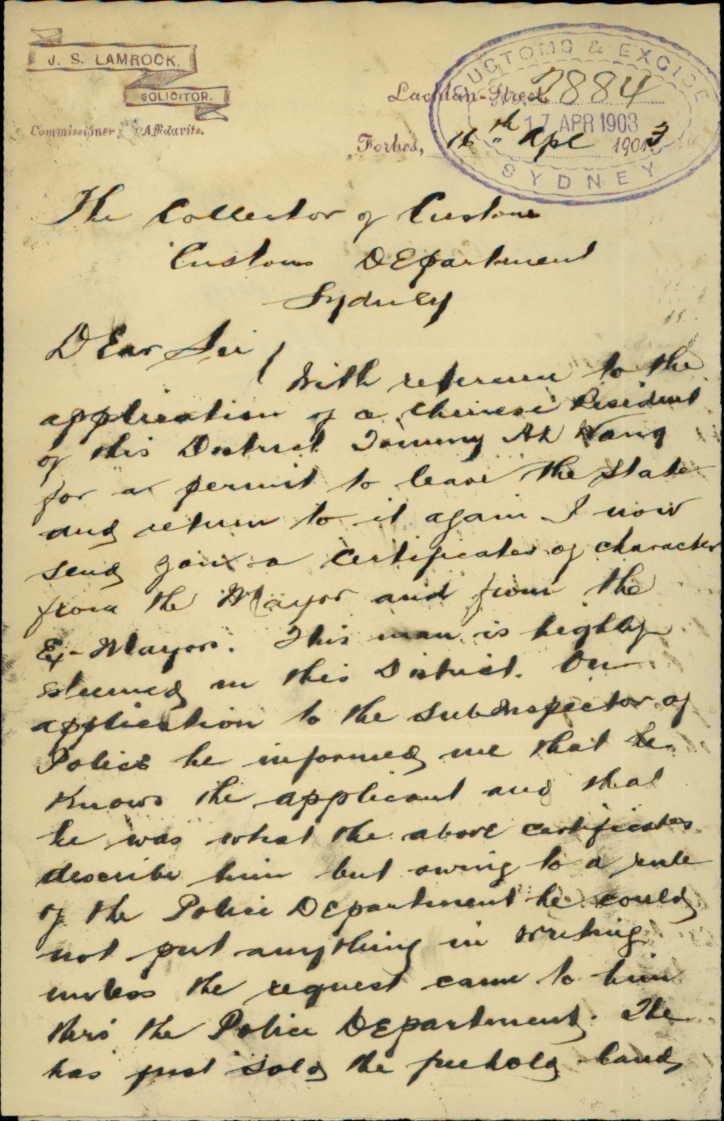 J. S. LAMROCK.
SOLICITOR.
Commissioner Affidavits.
CUSTOMS & EXCISE
2884
17 APR 1903
SYDNEY
Lachlan-Street
Forbes, 16th Apl 1903
The Collector of Customs
Customs Department
Sydney
Dear Sir/
With reference to the
application of a Chinese Resident
of this District Tommy Ah Wang
for a permit to leave the State
and return to it again I now
send you a certificates of character
from the Mayor and from the
Ex-Mayor. This man is highly
esteemed in this District. On
application to the SubInspector of
Police he informed me that he
knows the applicant and that
he was what the above certificates
describe him but owing to a rule
of the Police Department he could
not put anything in writing
unless the request came to him
thro' the Police Department. He
has just sold the freehold land